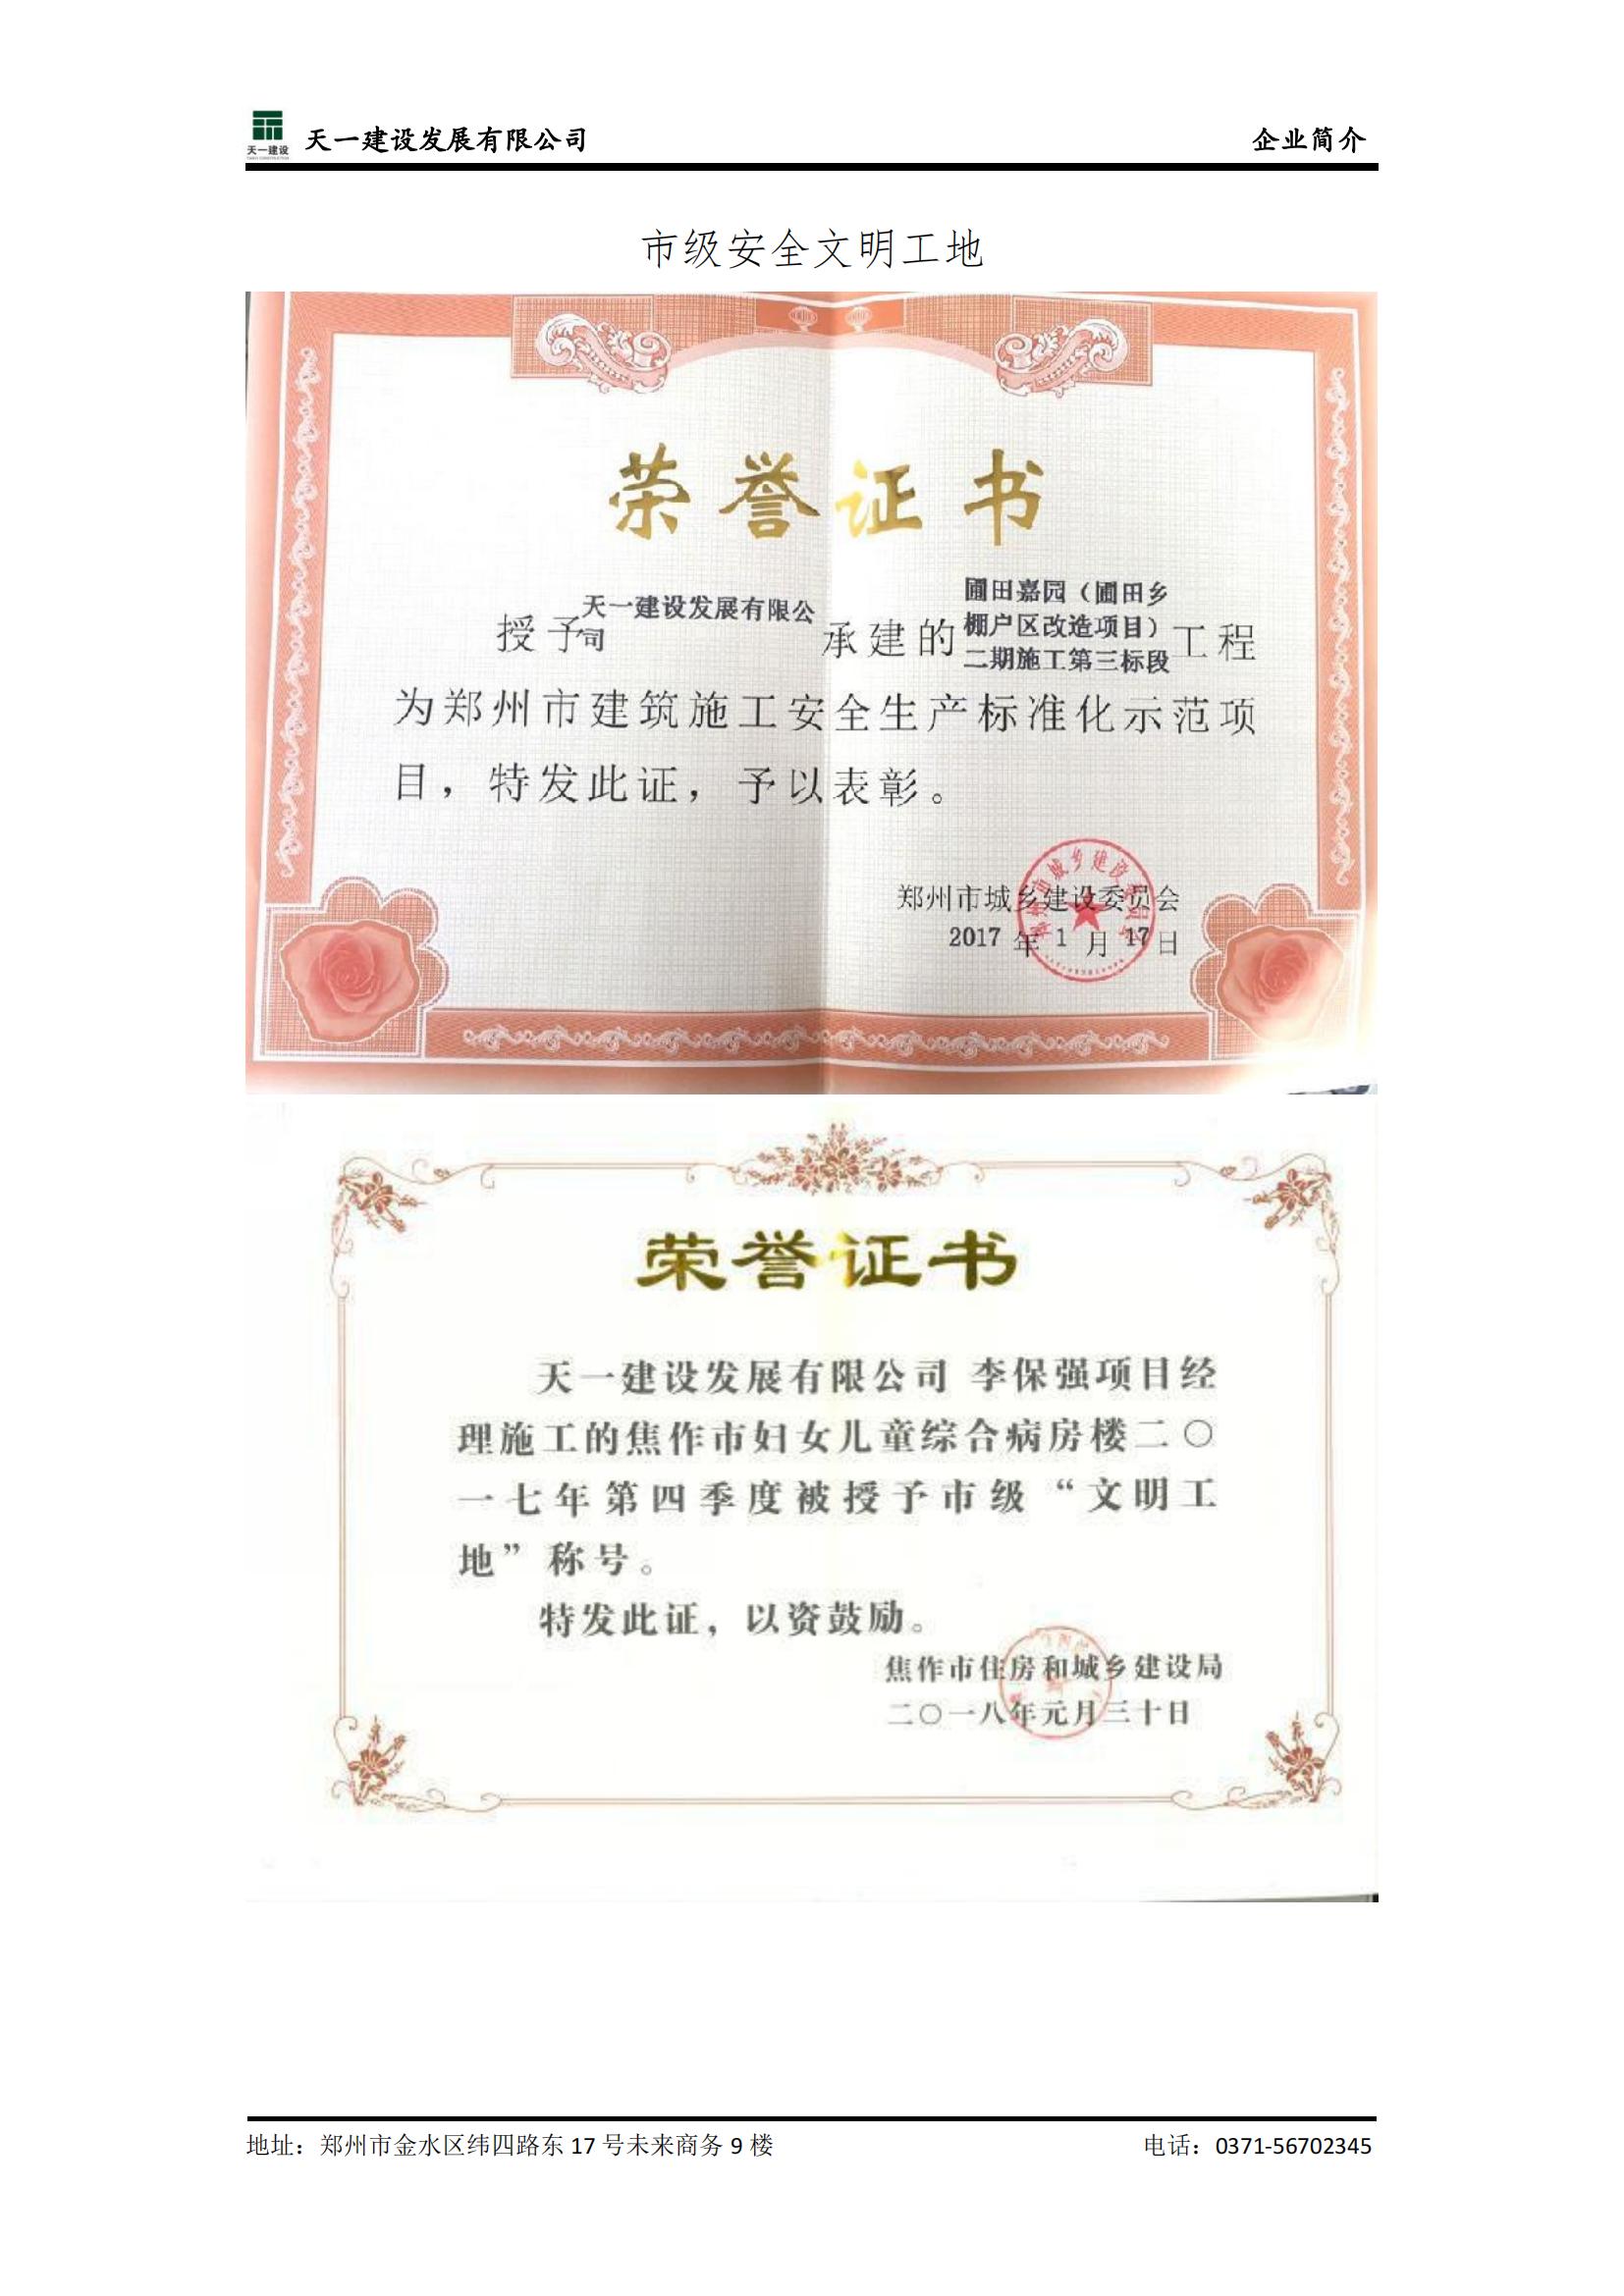 天一建设
天一建设发展有限公司
企业简介
市级安全文明工地
荣誉证书
授予天一建设发展有限公司承建的圃田嘉园（圃田乡棚户区改造项目）二期施工第三标段工程
为郑州市建筑施工安全生产标准化示范项
目，特发此证，予以表彰。
郑州市城乡建设委员会
2017 年 1 月 17 日
荣誉证书
天一建设发展有限公司 李保强项目经
理施工的焦作市妇女儿童综合病房楼二〇
一七年第四季度被授予市级“文明工
地”称号。
特发此证，以资鼓励。
焦作市住房和城乡建设局
二〇一八年元月三十日
地址：郑州市金水区纬四路东 17 号未来商务 9 楼
电话：0371-56702345